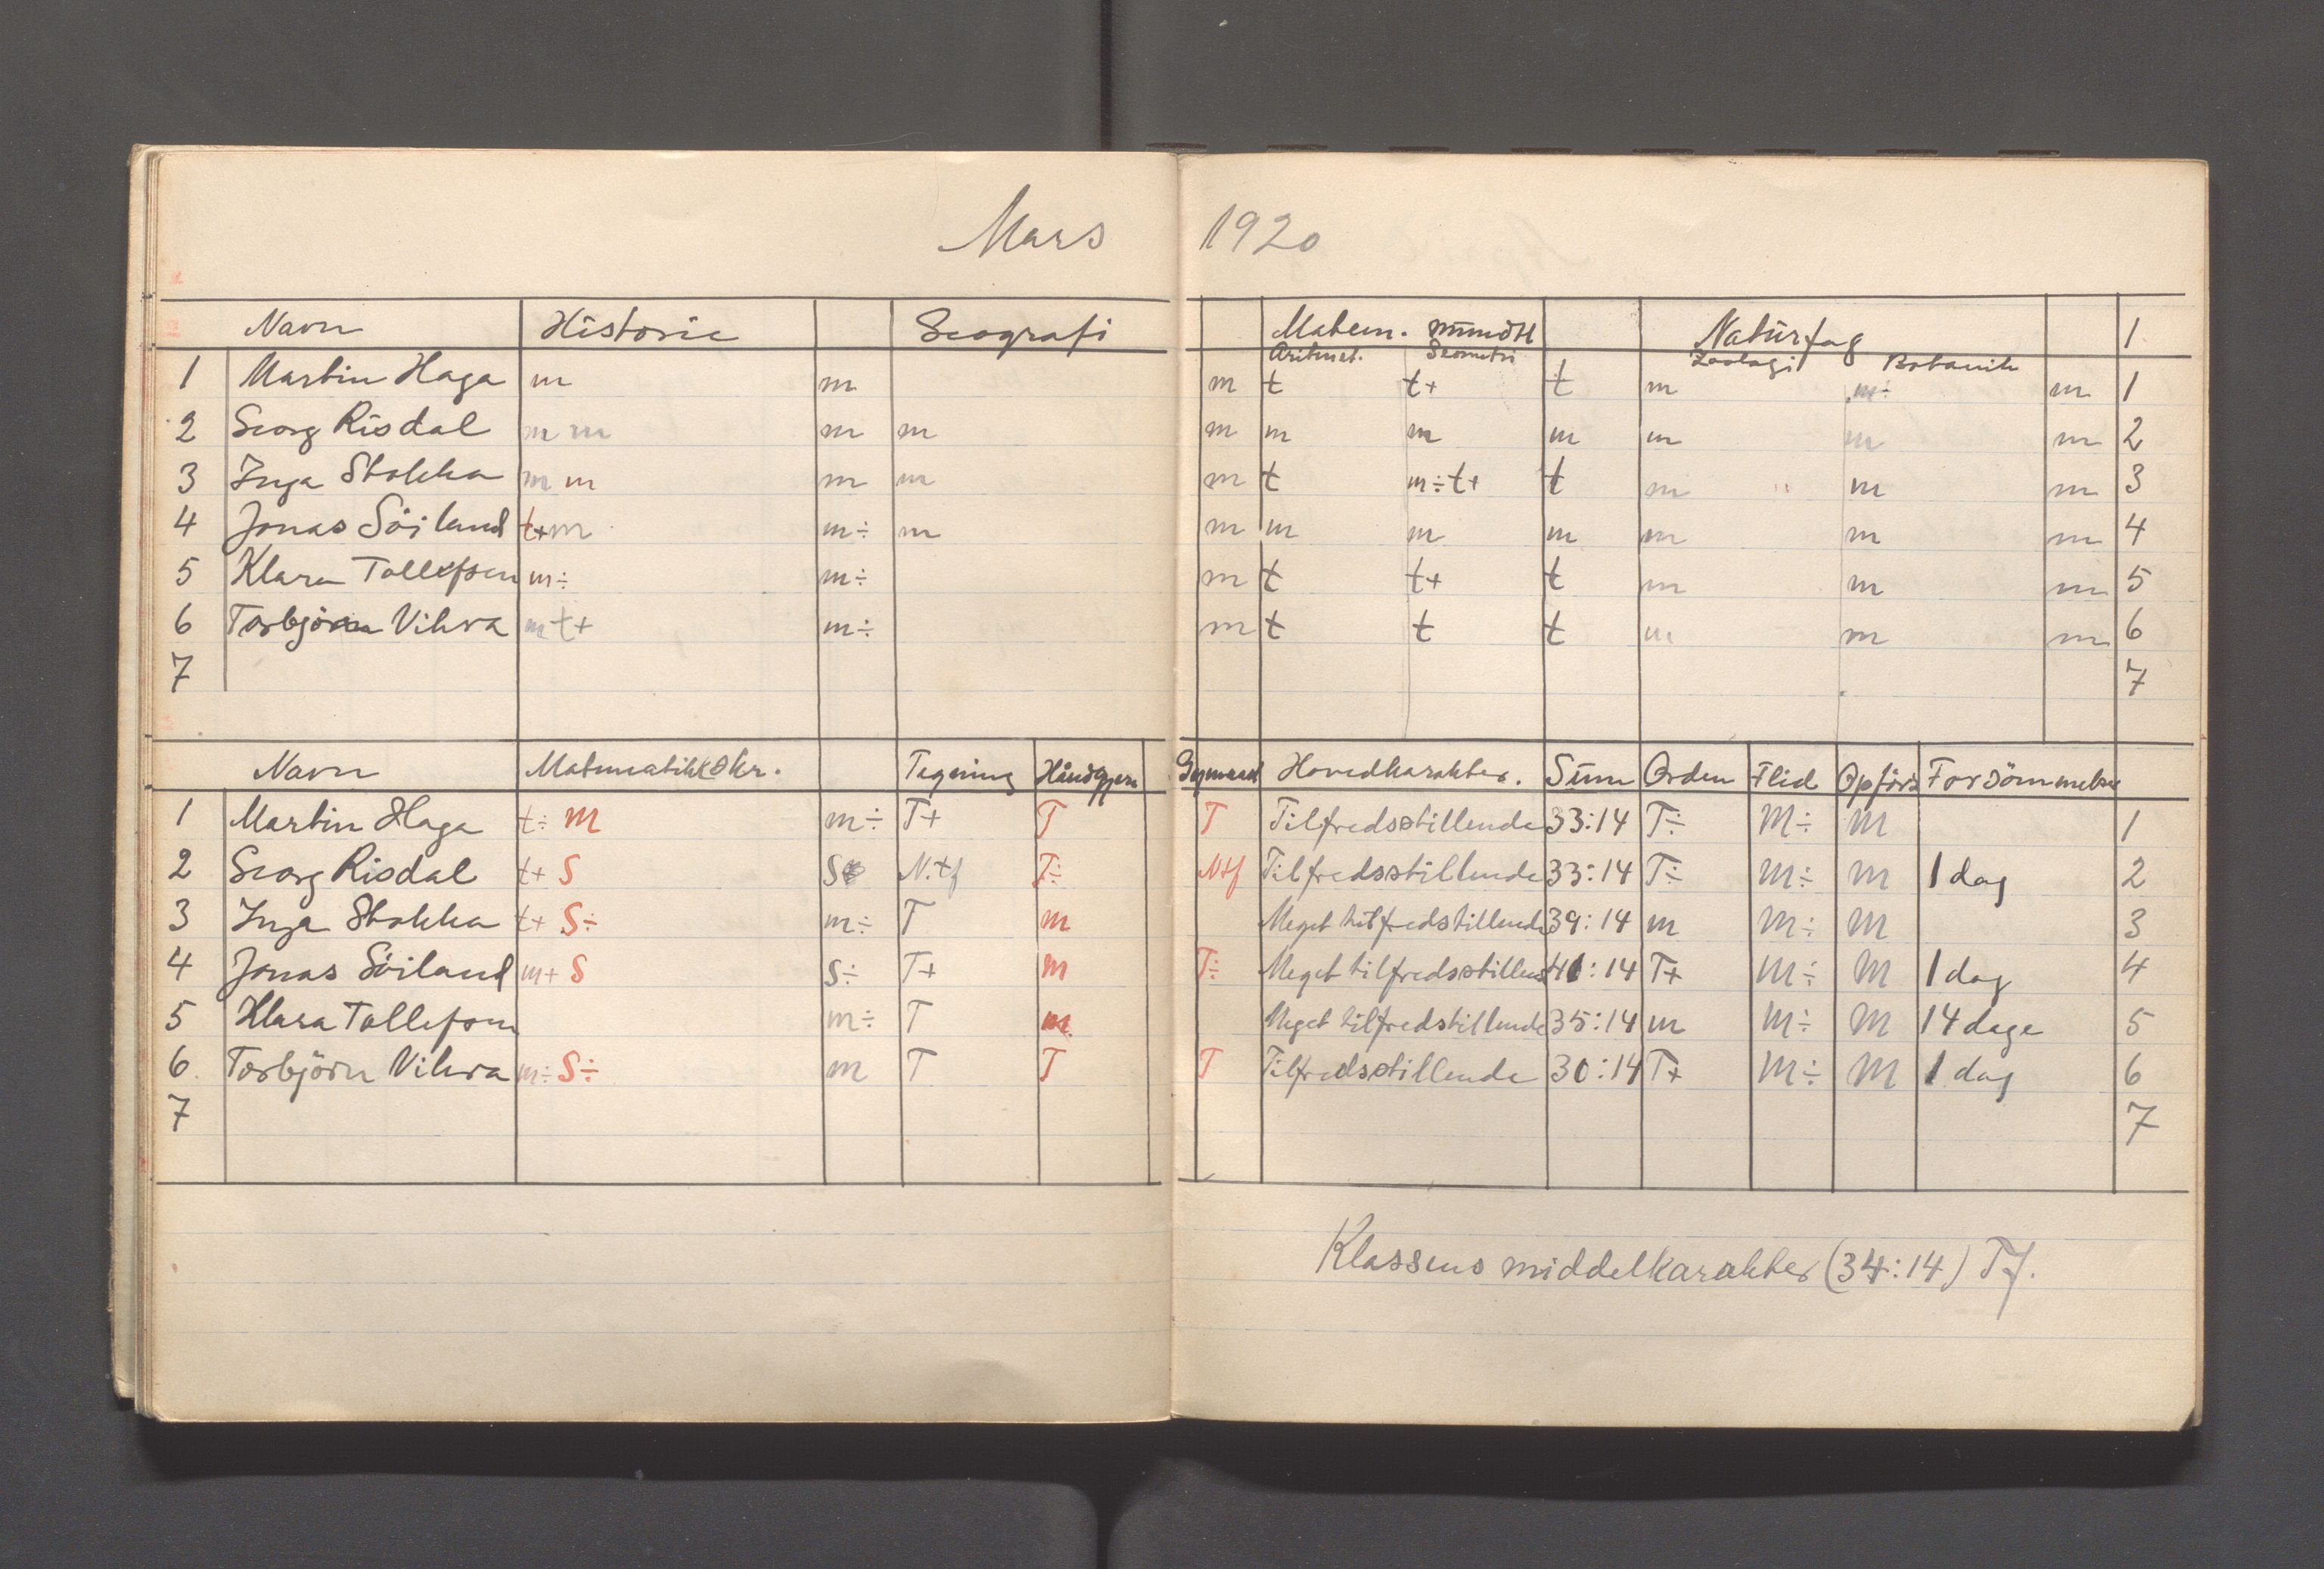 Mars 1920
Navn Historie Geografi Matem. mundtl Naturfag 1
Aritmet. Geometri Zoologi Botanik
1 Martin Haga m m m t t+ t m m÷ m 1
2 Georg Risdal m m m m m m m m m m m 2
3 Inga Stokka m m m m m t m÷t+ t m m m 3
4 Jonas Söiland t+m m÷ m m m m m m m m 4
5 Klara Tollefsen m÷ m÷ m t t+ t m m m 5
6 Torbjörn Vikra m t+ m÷ m t t t m m m 6
7 7
Navn Matematik skr. Tegning Håndgjern Gymnast Hovedkarakter. Sum Orden Flid Opförs Forsömmelse
1 Martin Haga t÷ M m÷ T+ T T Tilfredsstillende 33:14 T÷ M÷ M 1
2 Georg Risdal t+ S S N.tf T÷ Ntf Tilfredsstillende 33:14 T÷ M÷ M 1 dag 2
3 Inga Stokka t+ S÷ m÷ T m Meget tilfredstillende 39:14 m M÷ M 3
4 Jonas Söiland m+ S S÷ T+ m T÷ Meget tilfredsstillend 41:14 T+ M÷ M 1 dag 4
5 Klara Tollefsen m÷ T m Meget tilfredstillende 35:14 m M÷ M 14 dage 5
6 Torbjörn Vikra m÷ S÷ m T T T Tilfredsstillende 30:14 T+ M÷ M 1 dag 6
7 7
Klassens middelkarakter (34:14) Tf.